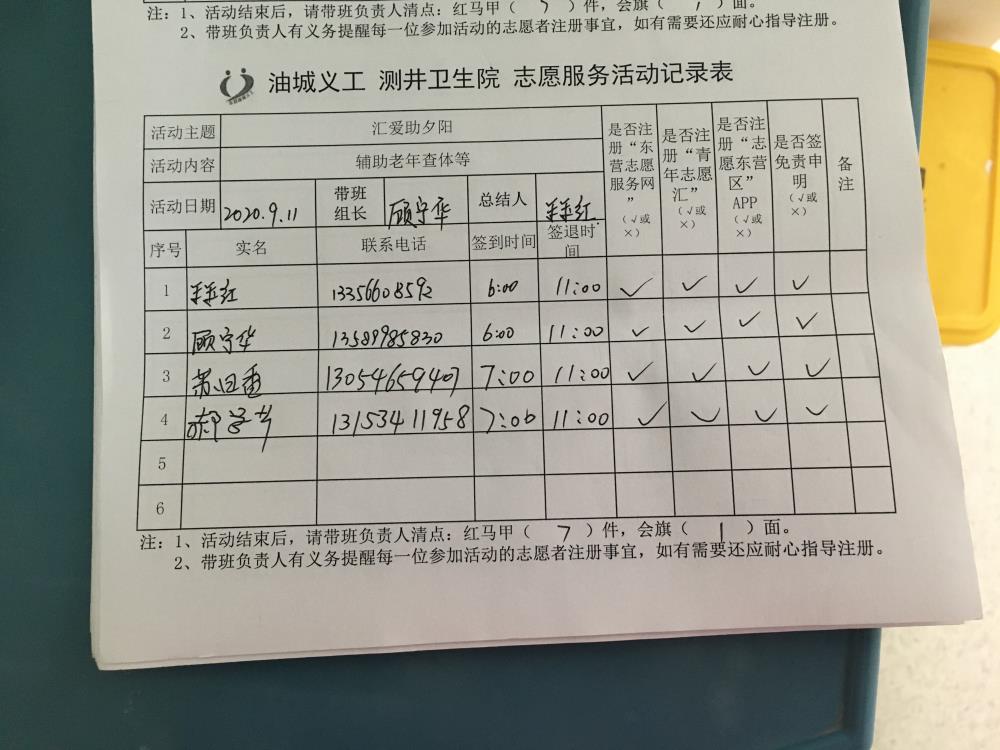 注：1、活动结束后，请带班负责人清点：红马甲（ 7 ）件，会旗（ 1 ）面。
2、带班负责人有义务提醒每一位参加活动的志愿者注册事宜，如有需要还应耐心指导注册。
油城义工 测井卫生院 志愿服务活动记录表
活动主题 汇爱助夕阳
活动内容 辅助老年查体等
活动日期 2020.9.11 带班组长 顾守华 总结人 红
是否注册“东营志愿服务网”（√或×） 是否注册“青年志愿汇”（√或×） 是否注册“志愿东营区”APP（√或×） 是否签免责申明（√或×） 备注
序号 实名 联系电话 签到时间 签退时间
1 红 13356608592 6:00 11:00 √ √ √ √
2 顾守华 13589985830 6:00 11:00 √ √ √ √
3 香 13054659407 7:00 11:00 √ √ √ √
4 郝学芳 13153411958 7:00 11:00 √ √ √ √
5
6
注：1、活动结束后，请带班负责人清点：红马甲（ 7 ）件，会旗（ 1 ）面。
2、带班负责人有义务提醒每一位参加活动的志愿者注册事宜，如有需要还应耐心指导注册。